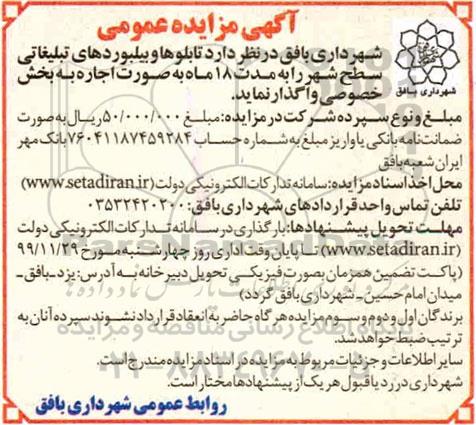 آگهی مزایده عمومی
شهرداری بافق در نظر دارد تابلوها و بیلبوردهای تبلیغاتی
سطح شهر را به مدت ۱۸ ماه به صورت اجاره به بخش
خصوصی واگذار نماید.
شهرداری بافق
مبلغ و نوع سپرده شرکت در مزایده: مبلغ ۵۰/۰۰۰/۰۰۰ ریال به صورت
ضمانت نامه بانکی یا واریز مبلغ به شماره حساب ۷۶۰۴۱۱۸۷۴۵۹۲۸۴ بانک مهر
ایران شعبه بافق
محل اخذ اسناد مزایده: سامانه تدارکات الکترونیکی دولت (www.setadiran.ir)
تلفن تماس واحد قراردادهای شهرداری بافق: ۰۳۵۳۲۴۲۰۲۰۰
مهلت تحویل پیشنهادها: بارگذاری در سامانه تدارکات الکترونیکی دولت
(www.setadiran.ir) تا پایان وقت اداری روز چهارشنبه مورخ ۹۹/۱۱/۲۹
(پاکت تضمین همزمان بصورت فیزیکی تحویل دبیرخانه به آدرس: یزد-بافق-
میدان امام حسین-شهرداری بافق گردد)
برندگان اول و دوم و سوم مزایده هرگاه حاضر به انعقاد قرارداد نشوند سپرده آنان به
ترتیب ضبط خواهد شد.
سایر اطلاعات و جزئیات مربوط به مزایده در اسناد مزایده مندرج است.
شهرداری در رد یا قبول هر یک از پیشنهادها مختار است.
روابط عمومی شهرداری بافق